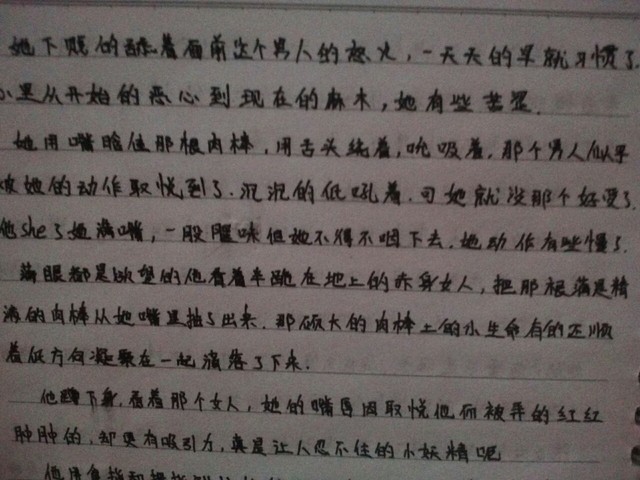 她下贱的舔着面前这个男人的怒火,一天天的早就习惯了.
心里从开始的恶心到现在的麻木,她有些苦涩.
她用嘴含住那根肉棒,用舌头绕着,吮吸着,那个男人似乎
被她的动作取悦到了.沉沉的低吼着.可她就没那个好受了.
他she了她满嘴,一股腥味但她不得不咽下去.她动作有些慢了.
满眼都是欲望的他看着半跪在地上的赤身女人,把那根满是精
液的肉棒从她嘴里抽了出来.那硕大的肉棒上的小生命有的正顺
着低方向凝聚在一起滴落了下来.
他蹲下身,看着那个女人,她的嘴唇因取悦他而被弄的红红
肿肿的,却更有吸引力,真是让人忍不住的小妖精呢
他用食指和